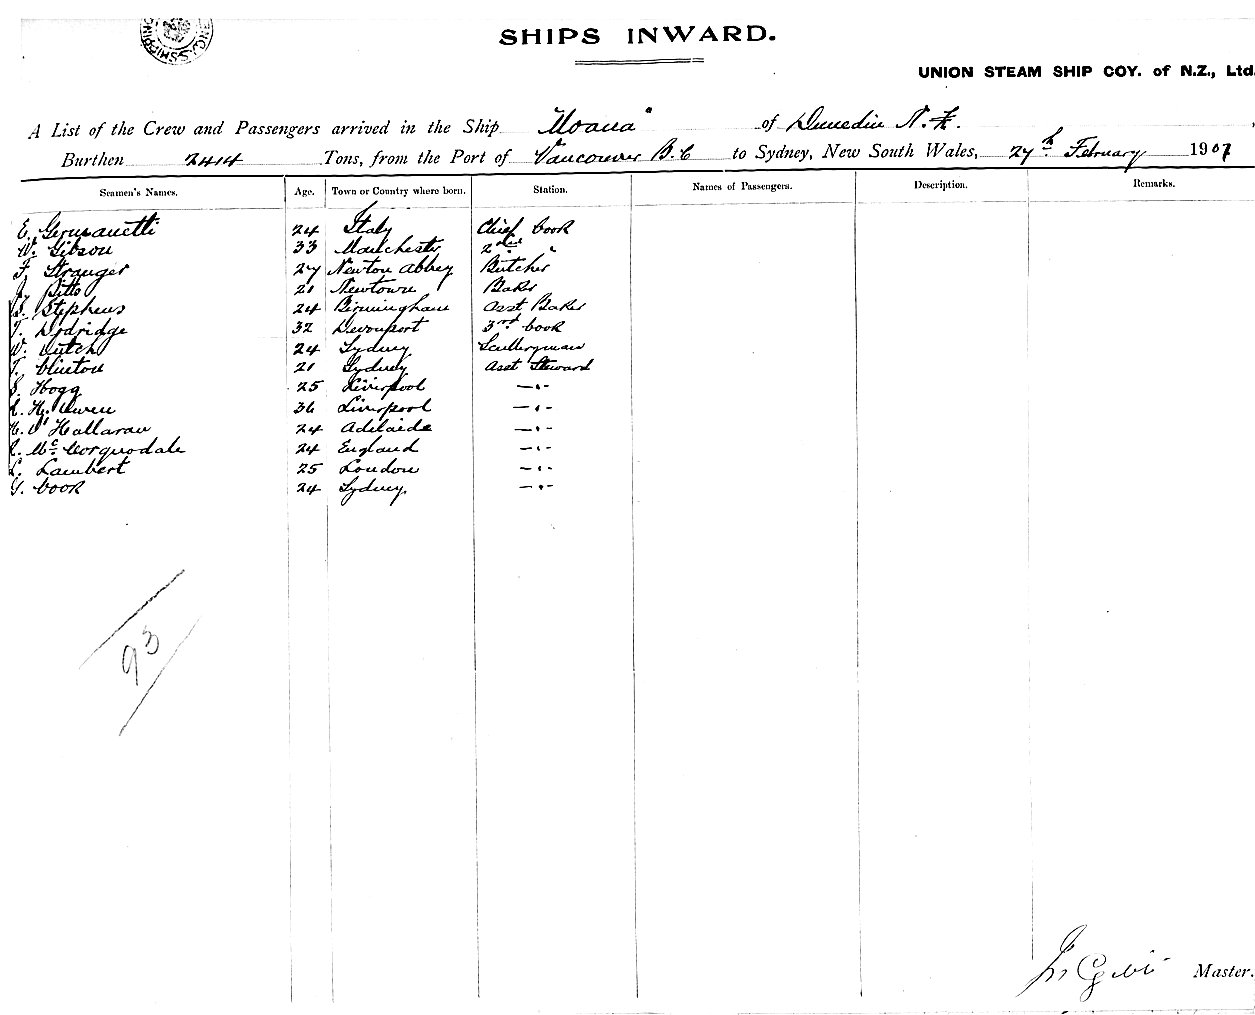 N.S.W. SHIPPING
SHIPS INWARD.
UNION STEAM SHIP COY. of N.Z., Ltd.
A List of the Crew and Passengers arrived in the Ship "Moana" of Dunedin N.Z.,
Burthen 2414 Tons, from the Port of Vancouver B.C to Sydney, New South Wales, 27th February 1907
Seamen's Names. Age. Town or Country where born. Station. Names of Passengers. Description. Remarks.
E. Germanetti 24 Italy Chief Cook
W. Gibson 33 Manchester 2nd "
F. Stranger 27 Newton Abbey Butcher
J. Pitts 21 Newtown Baker
S. Stephens 24 Birmingham Asst Baker
T. Dodridge 32 Devonport 3rd Cook
W. Dutch 24 Sydney Sculleryman
T. Clinton 21 Sydney Asst Steward
S. Hogg 25 Liverpool —"-
H. Owen 36 Liverpool —"-
H. O'Halloran 24 Adelaide —"-
McCorquodale 24 England —"-
L. Lambert 25 London —"-
G. Cook 24 Sydney. —"-
93
Master.